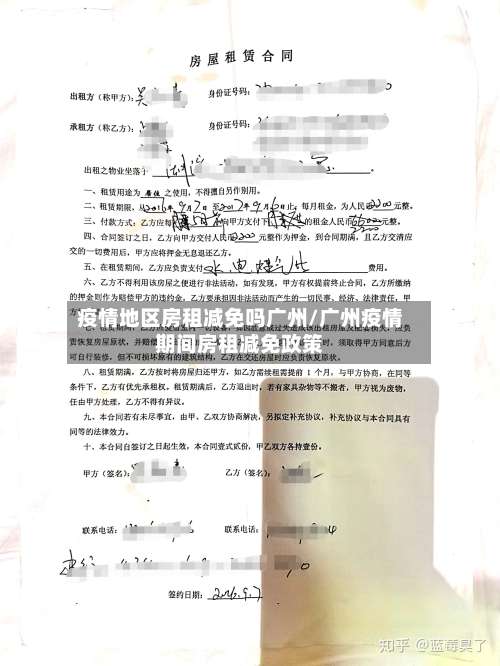 房屋租赁合同
出租方（称甲方）：吴 身份证号码：
承租方（称乙方）： 身份证号码：
出租之物业坐落于
一、租赁用途为 居住 之使用，不得擅自另作别用。
二、租赁期限，从2016年9月7日至2017年9月6日止，每月租金，为人民币2200元整。
三、付款方式：乙方应每 向甲方支付下 的租金人民币 元整。
四、合同签订之日，乙方向甲方交付人民币2200元整作为押金，到合同期满，且乙方交清应
交的一切费用后，甲方应将押金无息退还乙方。
五、在租赁期间，乙方应负责支付 水 电 费用。
六、乙方不得利用该房屋之便进行非法活动，如有发现，甲方有权提前终止合同，乙方所缴纳
的押金则作为赔偿甲方的违约金，乙方要承担因非法活动而产生的一切民事、经济、法律责任，甲
疫情地区房租减免吗广州/广州疫情
期间房租减免政策
责恢复房屋原状，并赔偿 时，须取得甲方同意后方
可自行装修，但不可损坏原有的建筑结构，乙方在交还房屋时应负责恢复原状。
八、租赁期满，乙方按时将房屋归还甲方，如乙方需续租需提前 1 个月，与甲方协商，在同等
条件下，乙方有优先承租权。租赁期满后，乙方退出时，若有家具杂物等不搬者，甲方视为废物，
任由甲方处理，乙方不得有异议。
九、本合同若有未尽事宜，由甲、乙双方协商解决，另拟定补充协议，补充协议与本合同具有
同等的法律效力。
十、本合同自签订之日起生效，本合同壹式贰份，甲乙双方各持壹份。
甲方（签名）： 乙方（签名）：
联系电话： 联系电话：
签约日期：2016.9.7
知乎 @蓝莓臭了